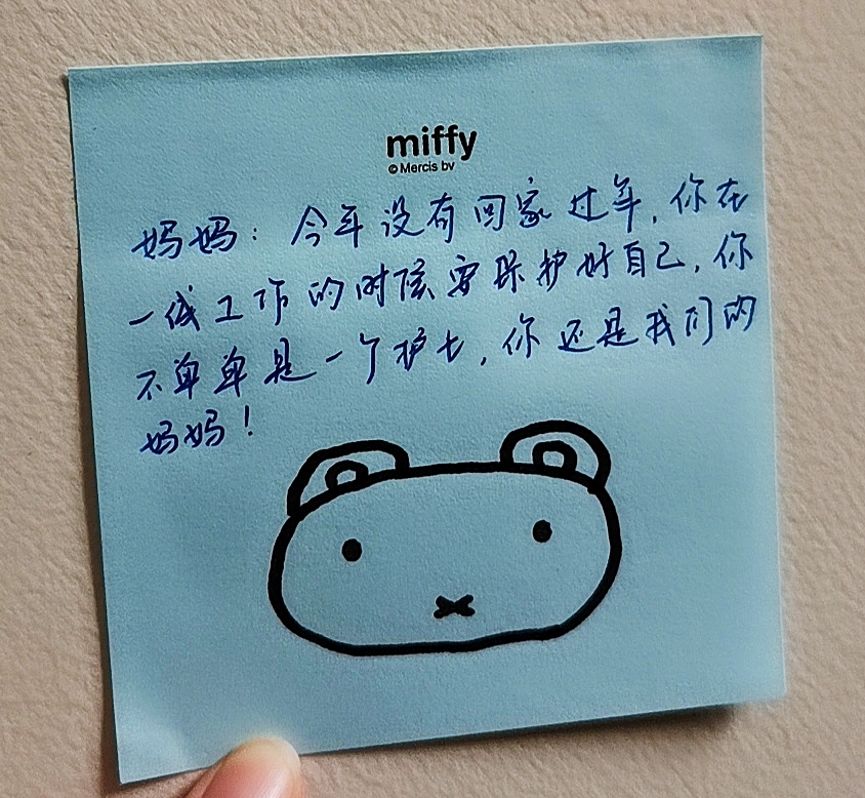 miffy
© Mercis bv
妈妈：今年没有回家过年，你在
一线工作的时候要保护好自己，你
不单单是一个护士，你还是我们的
妈妈！